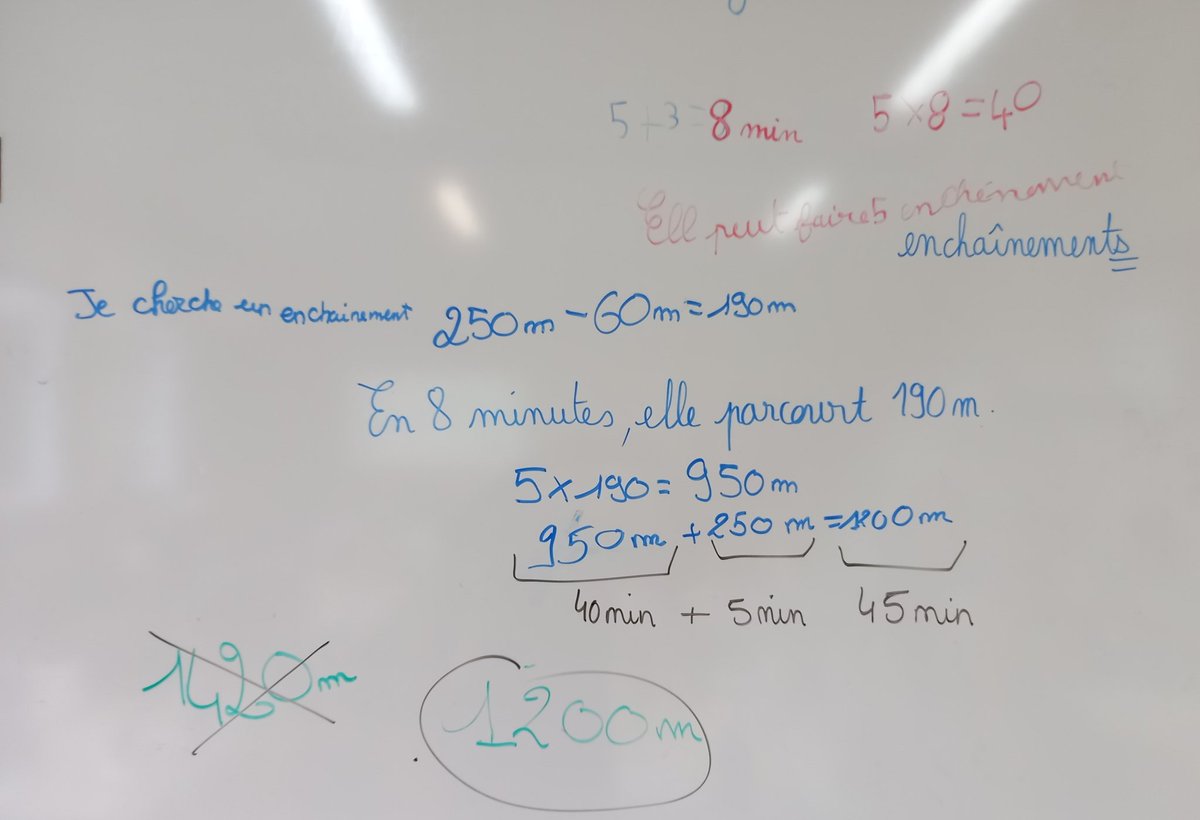 5+3=8 min 5×8=40
Elle peut faire 5 enchénement
enchaînements
Je cherche un enchainement 250m - 60m = 190m
En 8 minutes, elle parcourt 190m.
5×190= 950m
950m + 250m = 1200m
40min + 5min 45min
1420m
1200m